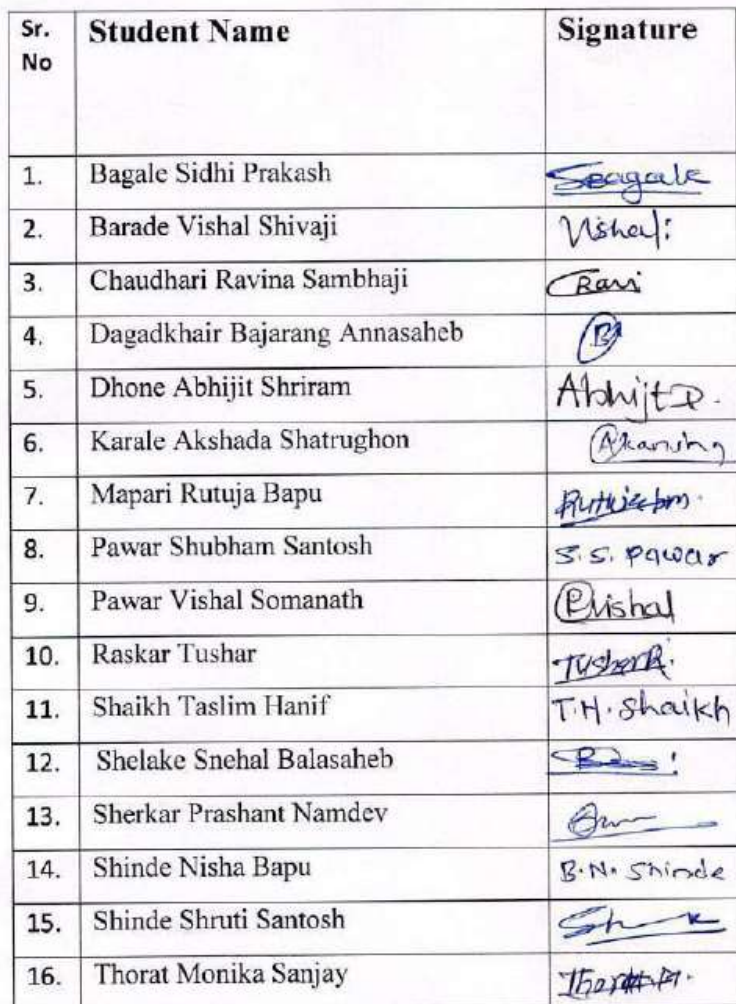 Sr. No Student Name Signature
1. Bagale Sidhi Prakash Sbagale
2. Barade Vishal Shivaji
3. Chaudhari Ravina Sambhaji Ravi
4. Dagadkhair Bajarang Annasaheb B
5. Dhone Abhijit Shriram Abhijit D.
6. Karale Akshada Shatrughon
7. Mapari Rutuja Bapu
8. Pawar Shubham Santosh S.S. Pawar
9. Pawar Vishal Somanath PVishal
10. Raskar Tushar TusharR.
11. Shaikh Taslim Hanif T.H. Shaikh
12. Shelake Snehal Balasaheb
13. Sherkar Prashant Namdev
14. Shinde Nisha Bapu B.N. Shinde
15. Shinde Shruti Santosh
16. Thorat Monika Sanjay